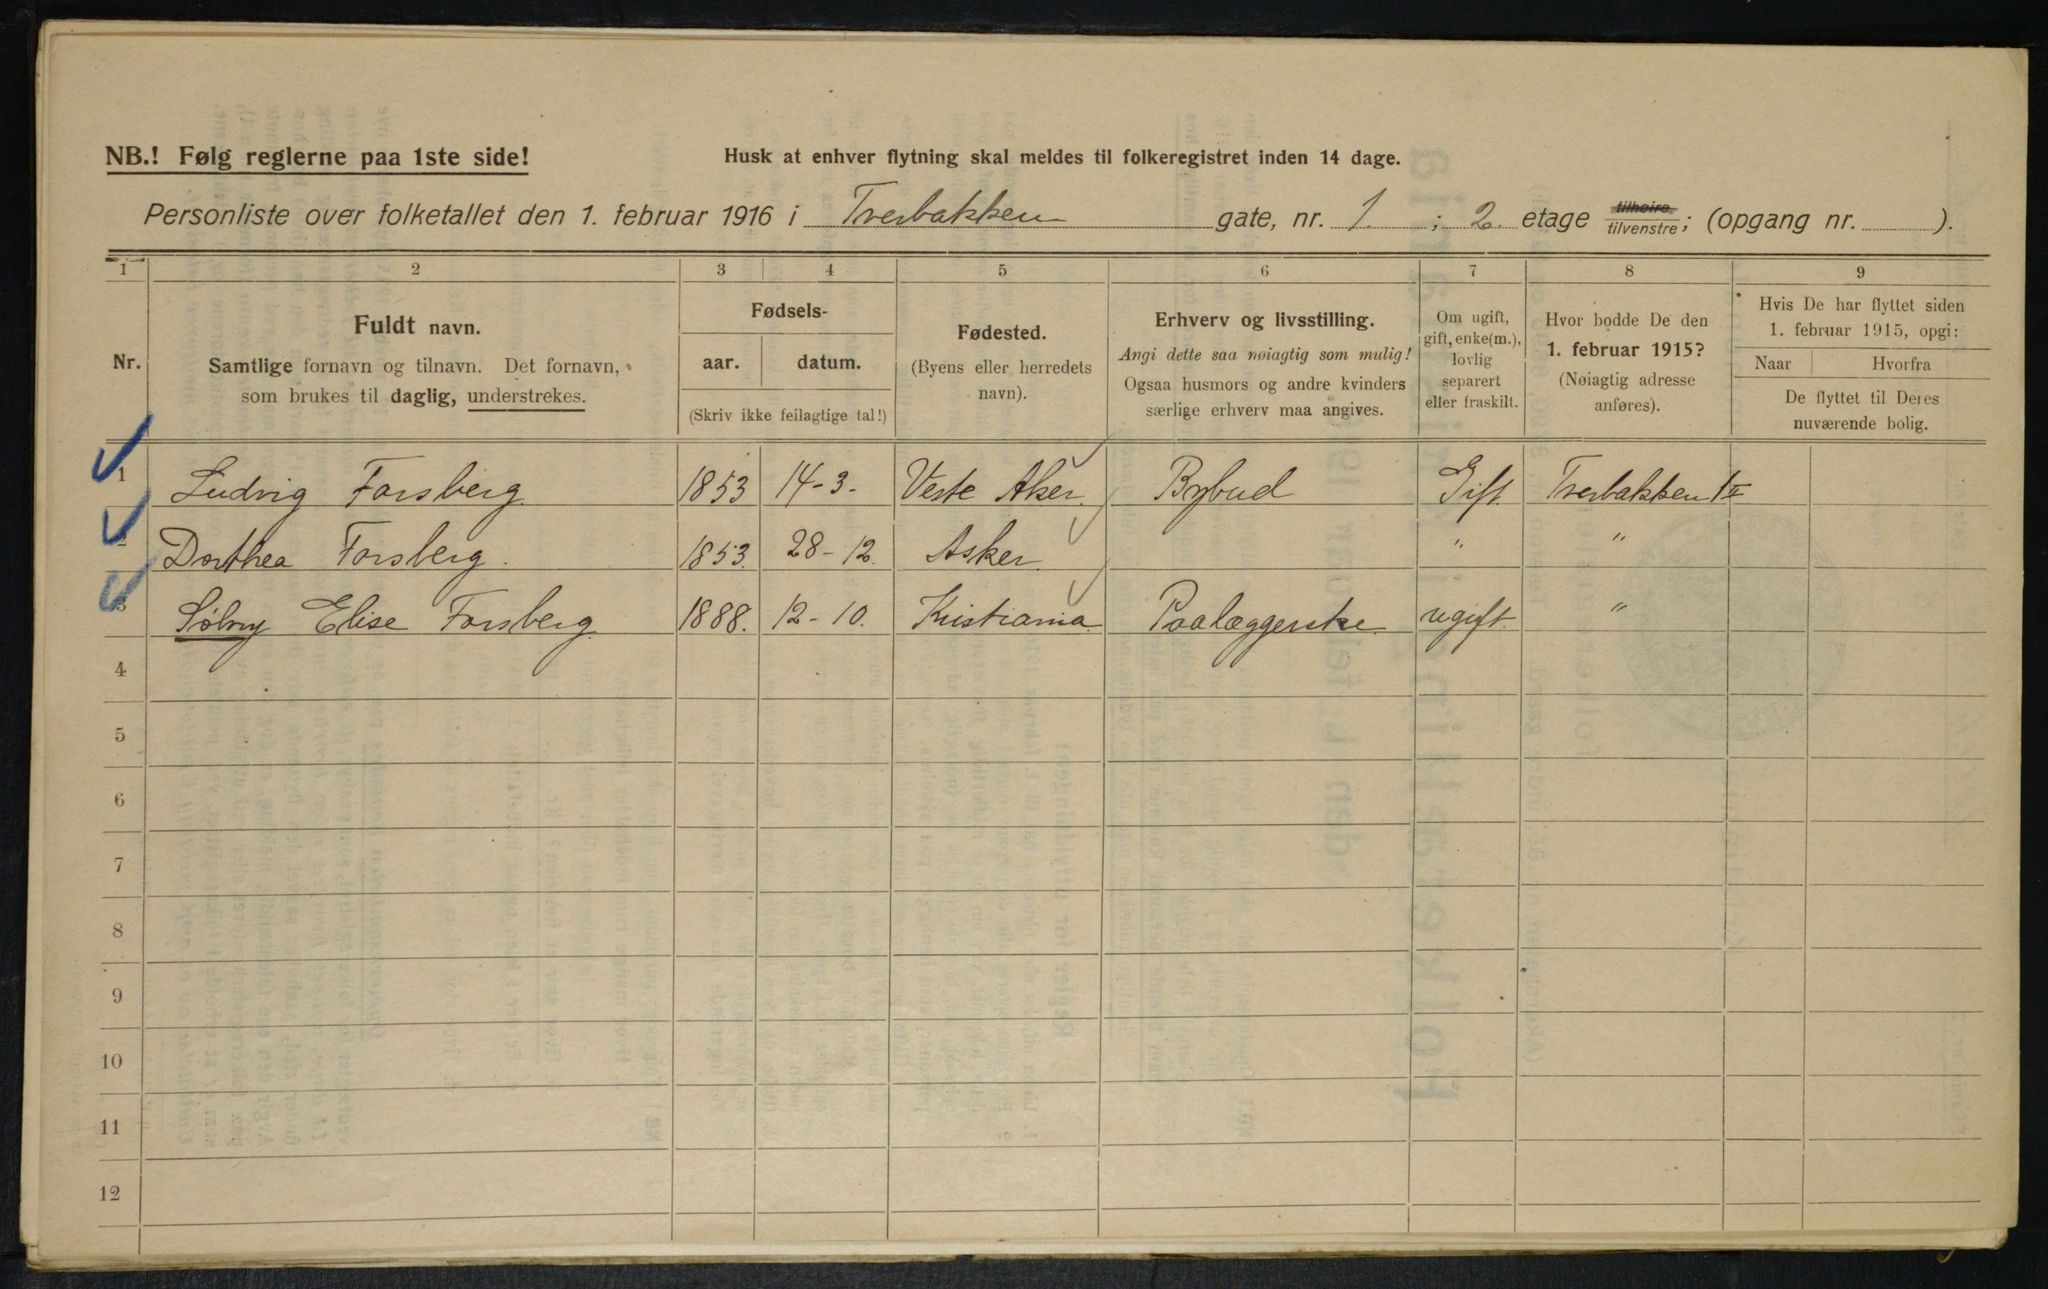 NB.! Følg reglerne paa 1ste side!
Husk at enhver flytning skal meldes til folkeregistret inden 14 dage.
Personliste over folketallet den 1. februar 1916 i Tverbakken gate, nr. 1. ; 2. etage tilhøire/tilvenstre; (opgang nr. ).
1 2 3 4 5 6 7 8 9
Nr.
Fuldt navn.
Samtlige fornavn og tilnavn. Det fornavn,
som brukes til daglig, understrekes.
Fødsels-
aar. datum.
(Skriv ikke feilagtige tal!)
Fødested.
(Byens eller herredets
navn).
Erhverv og livsstilling.
Angi dette saa nøiagtig som mulig!
Ogsaa husmors og andre kvinders
særlige erhverv maa angives.
Om ugift,
gift, enke(m.),
lovlig
separert
eller fraskilt.
Hvor bodde De den
1. februar 1915?
(Nøiagtig adresse
anføres).
Hvis De har flyttet siden
1. februar 1915, opgi:
Naar Hvorfra
De flyttet til Deres
nuværende bolig.
1 Ludvig Forsberg 1853 14-3- Vestre Aker Bybud Gift. Tverbakken 1 II
2 Dorthea Forsberg. 1853. 28-12. Asker. " "
3 Sølvy Elise Forsberg 1888. 12-10. Kristiania Paalæggerske ugift. "
4
5
6
7
8
9
10
11
12